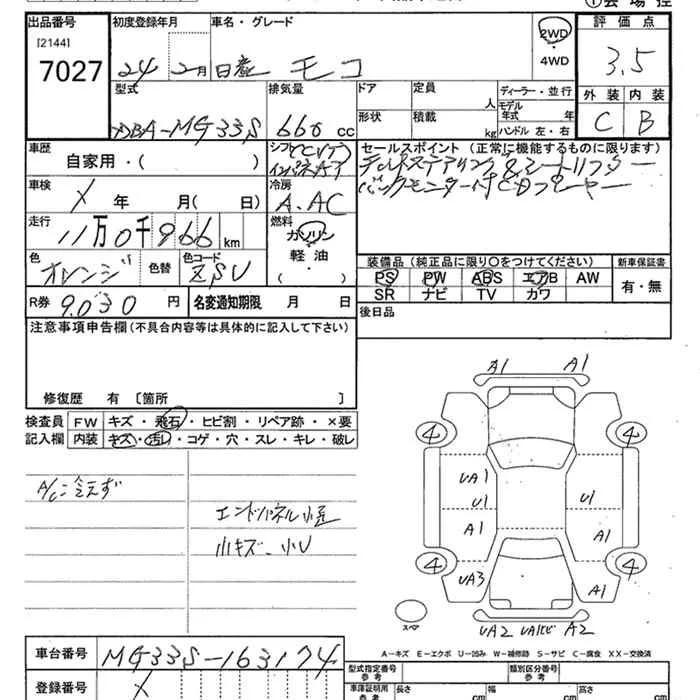 出品番号
[2144]
7027
初度登録年月
24 2月
車名・グレード
日産 モコ
2WD
・
4WD
評価点
3.5
型式
DBA-MG33S
排気量
660 cc
ドア
定員
人
形状
積載
kg
ディーラー・並行
モデル年式 年
ハンドル 左・右
外装
内装
C
B
車歴
自家用・( )
シフト(CVT)
インパネAT
セールスポイント (正常に機能するものに限ります)
チルトステアリング&シートリフター
バックモニター付CDプレーヤー
車検
X 年 月( 日)
冷房
A.AC
走行
11万0千966 km
燃料
ガソリン
軽油・
( )
色
オレンジ
色替
色コード
ZSU
装備品 (純正品に限り○をつけてください)
新車保証書
PS
PW
ABS
エアB
AW
SR
ナビ
TV
カワ
有・無
R券
9030 円
名変通知期限 月 日
後日品
注意事項申告欄 (不具合内容等は具体的に記入して下さい)
修復歴 有 〔箇所 〕
検査員
記入欄
FW
キズ・飛石・ヒビ割・リペア跡・×要
内装
キズ・汚レ・コゲ・穴・スレ・キレ・破レ
A/C冷えず
エンドパネル小歪
小キズ、小U
A1
A1
4
4
UA1
U1
U1
A1
A1
4
4
UA3
A1
スペア
UA2
UA1ヒビ
A2
A-キズ E-エクボ U-凹み W-補修跡 S-サビ C-腐食 XX-交換済
車台番号
MG33S-163174
登録番号
X
型式指定番号
参考
類別区分番号
参考
車庫証明用
参考
長さ
cm
幅
cm
高さ
cm